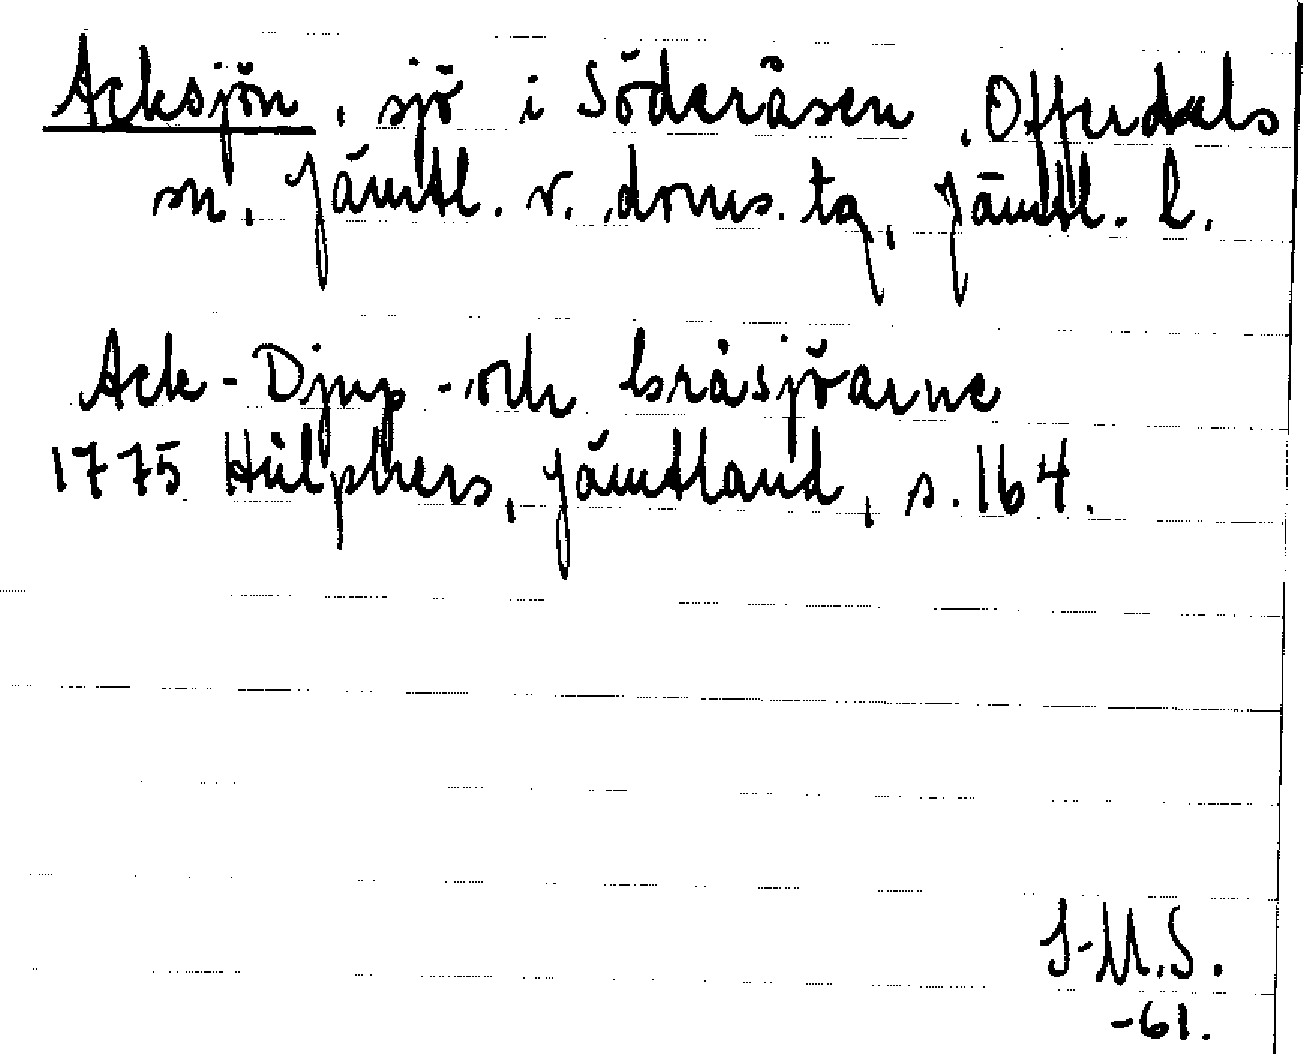 Acksjön, sjö i Söderåsen, Offerdals
sn, Jämtl. v. doms. tg, Jämtl. l.
Ack-Djup-och Gråsjöarne
1775 Hülphers, Jämtland, s. 164.
I-M.S.
-61.